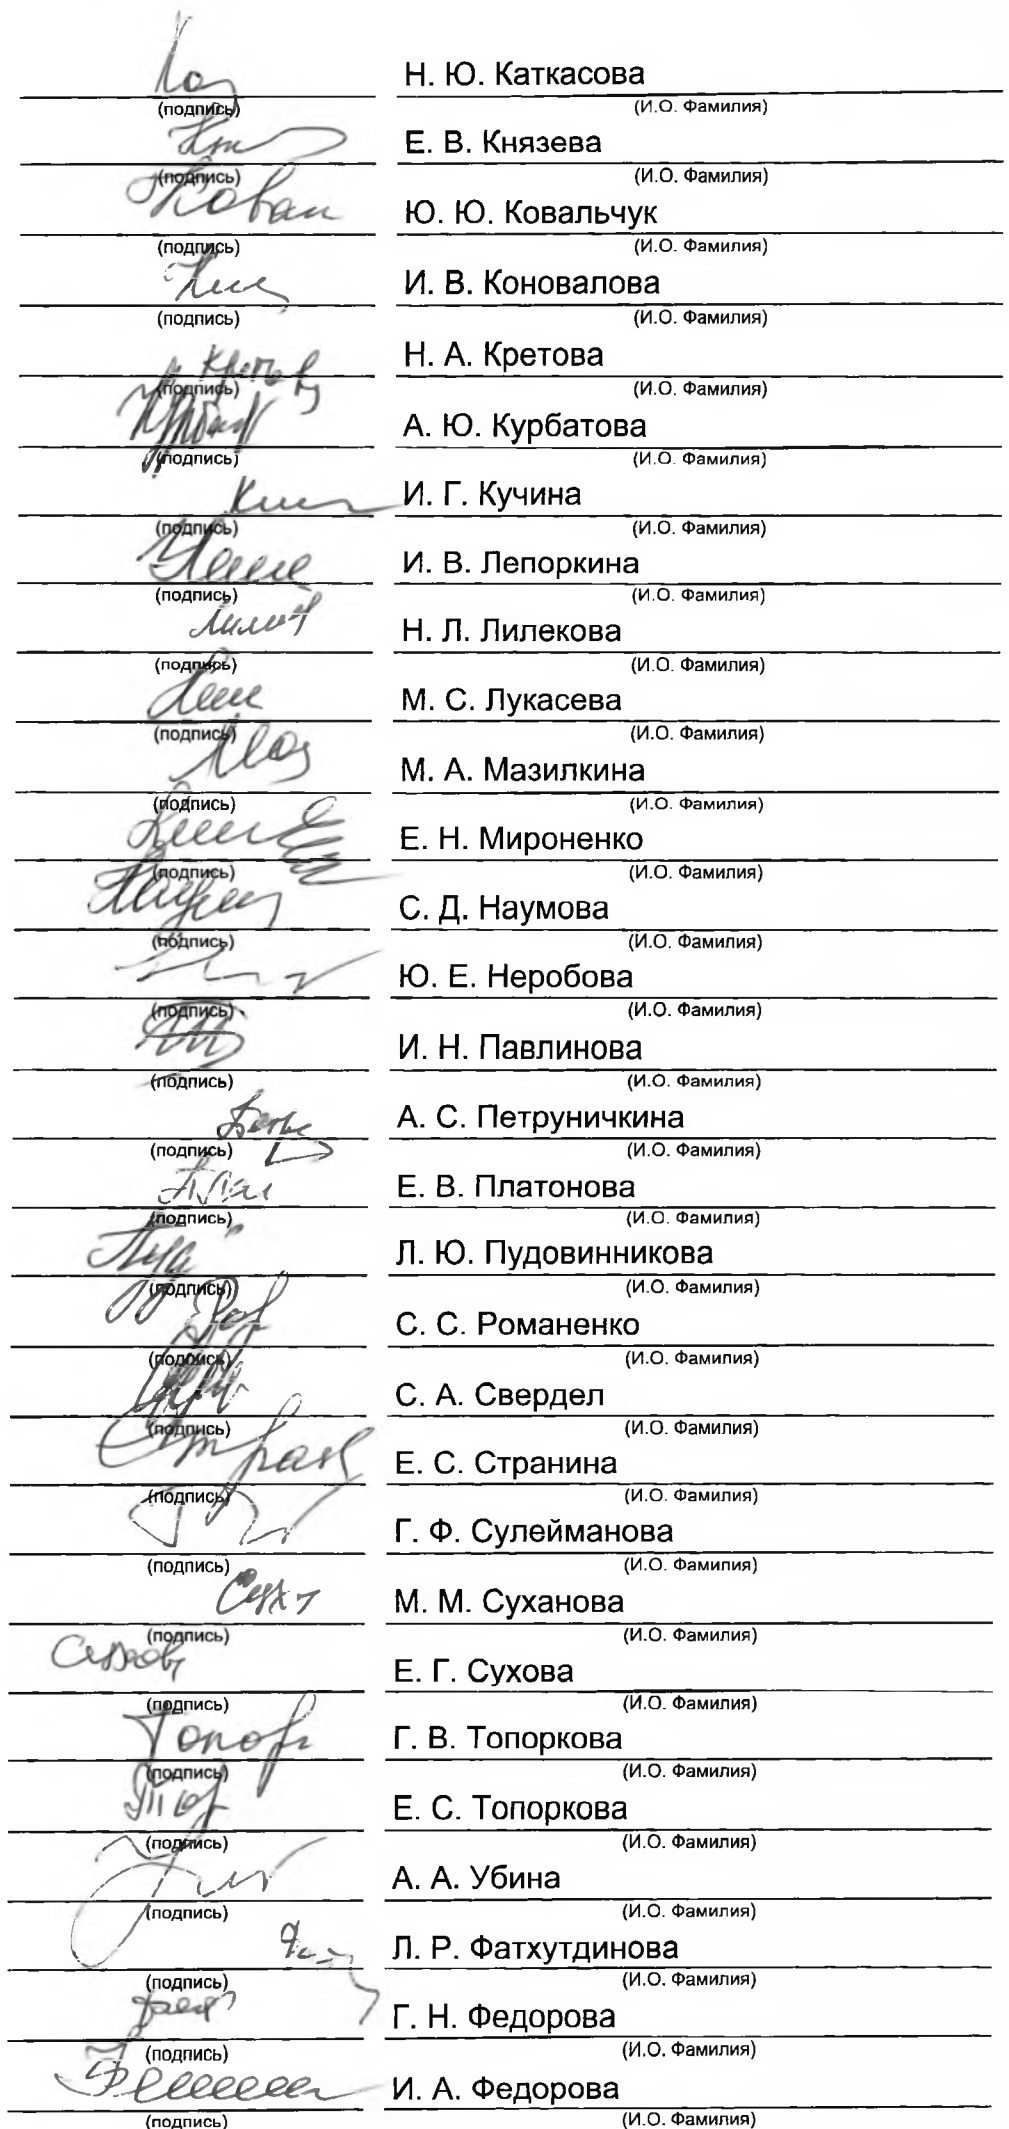 Н. Ю. Каткасова
(подпись) (И.О. Фамилия)
Е. В. Князева
(подпись) (И.О. Фамилия)
Кован Ю. Ю. Ковальчук
(подпись) (И.О. Фамилия)
И. В. Коновалова
(подпись) (И.О. Фамилия)
Н. А. Кретова
(подпись) (И.О. Фамилия)
А. Ю. Курбатова
(подпись) (И.О. Фамилия)
И. Г. Кучина
(подпись) (И.О. Фамилия)
И. В. Лепоркина
(подпись) (И.О. Фамилия)
Н. Л. Лилекова
(подпись) (И.О. Фамилия)
М. С. Лукасева
(подпись) (И.О. Фамилия)
М. А. Мазилкина
(подпись) (И.О. Фамилия)
Е. Н. Мироненко
(подпись) (И.О. Фамилия)
С. Д. Наумова
(подпись) (И.О. Фамилия)
Ю. Е. Неробова
(подпись) (И.О. Фамилия)
И. Н. Павлинова
(подпись) (И.О. Фамилия)
А. С. Петруничкина
(подпись) (И.О. Фамилия)
Е. В. Платонова
(подпись) (И.О. Фамилия)
Л. Ю. Пудовинникова
(подпись) (И.О. Фамилия)
С. С. Романенко
(подпись) (И.О. Фамилия)
С. А. Свердел
(подпись) (И.О. Фамилия)
Е. С. Странина
(подпись) (И.О. Фамилия)
Г. Ф. Сулейманова
(подпись) (И.О. Фамилия)
М. М. Суханова
(подпись) (И.О. Фамилия)
Е. Г. Сухова
(подпись) (И.О. Фамилия)
Г. В. Топоркова
(подпись) (И.О. Фамилия)
Е. С. Топоркова
(подпись) (И.О. Фамилия)
А. А. Убина
(подпись) (И.О. Фамилия)
Л. Р. Фатхутдинова
(подпись) (И.О. Фамилия)
Г. Н. Федорова
(подпись) (И.О. Фамилия)
И. А. Федорова
(подпись) (И.О. Фамилия)